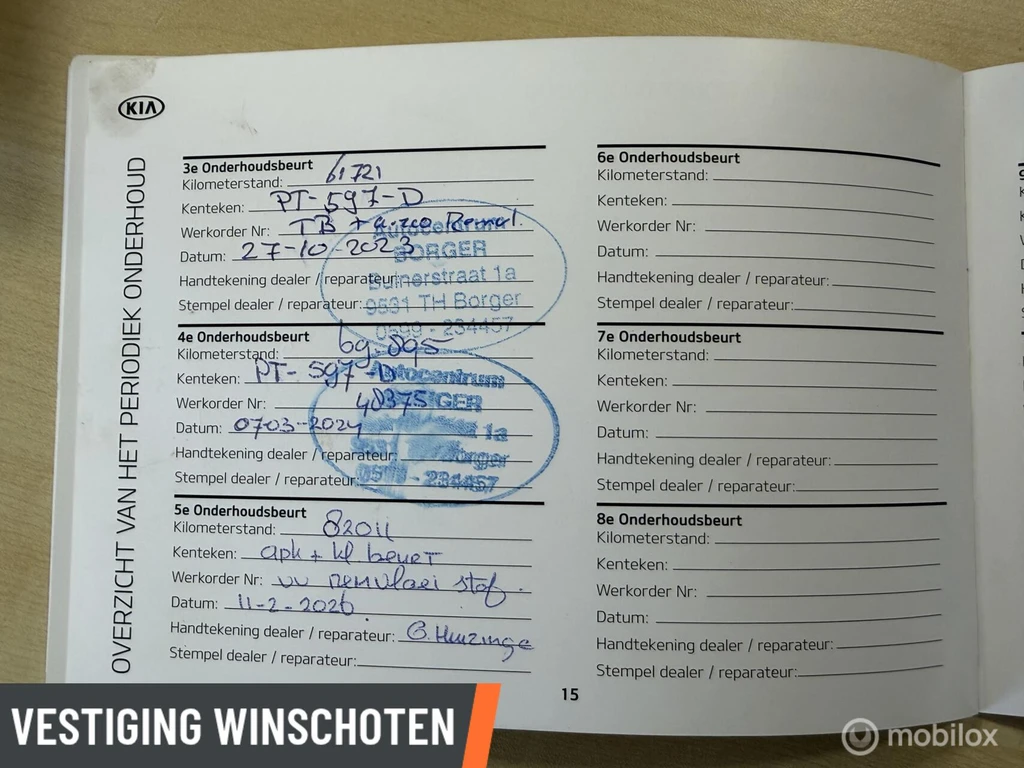 KIA
OVERZICHT VAN HET PERIODIEK ONDERHOUD
3e Onderhoudsbeurt
Kilometerstand: 61721
Kenteken: PT-597-D
Werkorder Nr: TB +
Datum: 27-10-2023
Handtekening dealer / reparateur:
Stempel dealer / reparateur:
Autocentrum
BORGER
Buinerstraat 1a
9531 TH Borger
0599 - 234457
4e Onderhoudsbeurt
Kilometerstand: 69 895
Kenteken: PT-597-D
Werkorder Nr: 48375
Datum: 07-03-2024
Handtekening dealer / reparateur:
Stempel dealer / reparateur:
Autocentrum
BORGER
1a
9531 Borger
0599 - 234457
5e Onderhoudsbeurt
Kilometerstand: 82011
Kenteken: apk + kl beurt
Werkorder Nr: vv remvloei stof.
Datum: 11-2-2026
Handtekening dealer / reparateur: G. Huizinge
Stempel dealer / reparateur:
6e Onderhoudsbeurt
Kilometerstand:
Kenteken:
Werkorder Nr:
Datum:
Handtekening dealer / reparateur:
Stempel dealer / reparateur:
7e Onderhoudsbeurt
Kilometerstand:
Kenteken:
Werkorder Nr:
Datum:
Handtekening dealer / reparateur:
Stempel dealer / reparateur:
8e Onderhoudsbeurt
Kilometerstand:
Kenteken:
Werkorder Nr:
Datum:
Handtekening dealer / reparateur:
Stempel dealer / reparateur:
15
VESTIGING WINSCHOTEN
mobilox